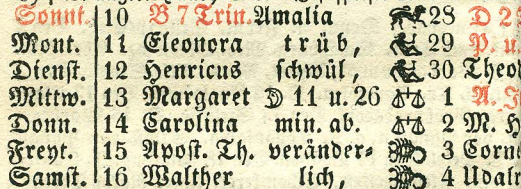 Sonnt. 10 B 7 Trin. Amalia 28 D 2
Mont. 11 Eleonora trüb, 29 P. u.
Dienst. 12 Henricus schwül, 30 Theo
Mittw. 13 Margaret ☽ 11 u. 26 ♎ 1 A.
Donn. 14 Carolina min. ab. ♎ 2 M. H
Freyt. 15 Apost. Th. veränder- 3 Corn
Samst. 16 Walther lich, 4 Udalr